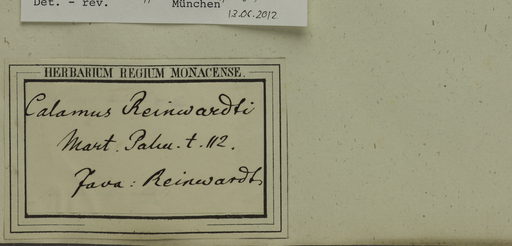 Det. - rev.
München
13.06.2012
HERBARIUM REGIUM MONACENSE.
Calamus Reinwardti
Mart. Palm. t. 112.
Java: Reinwardt